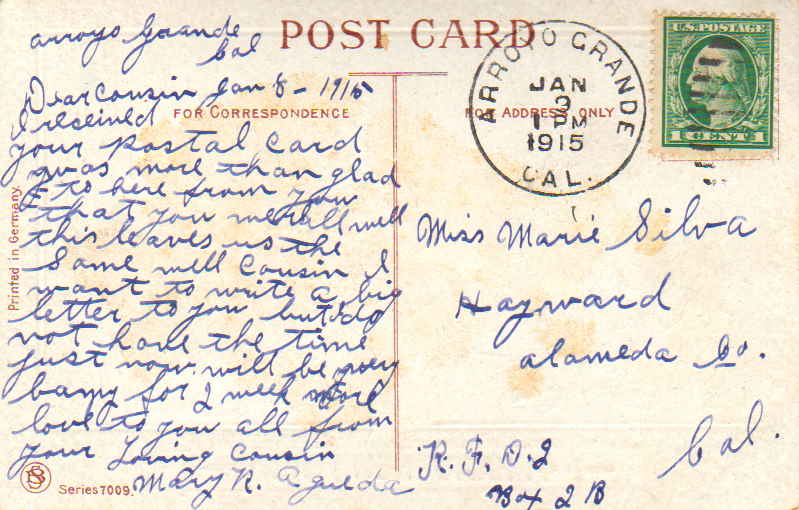 POST CARD
arroyo Grande
Cal
Dear Cousin Jan 8 - 1915
FOR CORRESPONDENCE
I receined
your Postal Card
was more than glad
to here from you
that you were all well
this leaves us the
same well Cousin I
want to write a big
letter to you but do
not have the time
just now will be very
for 2 week more
love to you all from
your Loving Cousin
Mary R. Agueda
Printed in Germany
Series 7009.
FOR ADDRESS ONLY
ARROYO GRANDE
JAN
3
1 PM
1915
CAL.
U.S. POSTAGE
1 CENT 1
Miss Marie Silva
Hayward
alameda Co.
Cal.
R. F. D. 2
Box 2 B